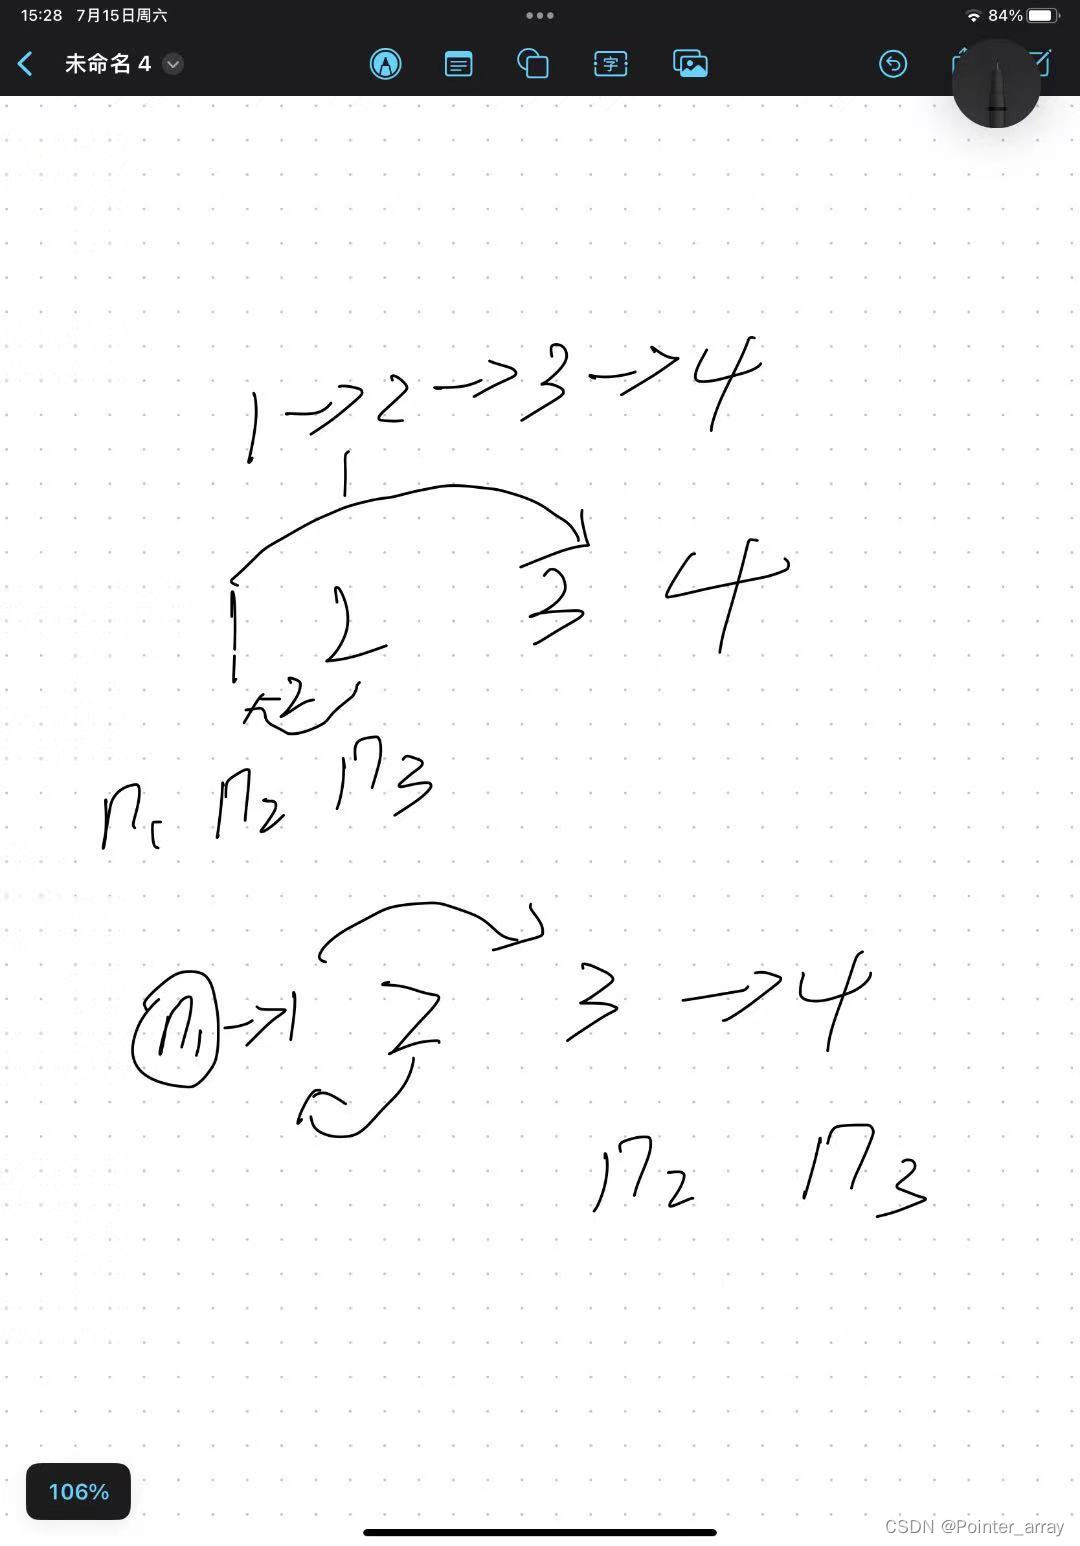 15:28 7月15日周六
84%
未命名 4
字
1→2→3→4
1
1 2 3 4
2
n1 n2 n3
n1→1 2 3→4
n2 n3
106%
CSDN @Pointer_array